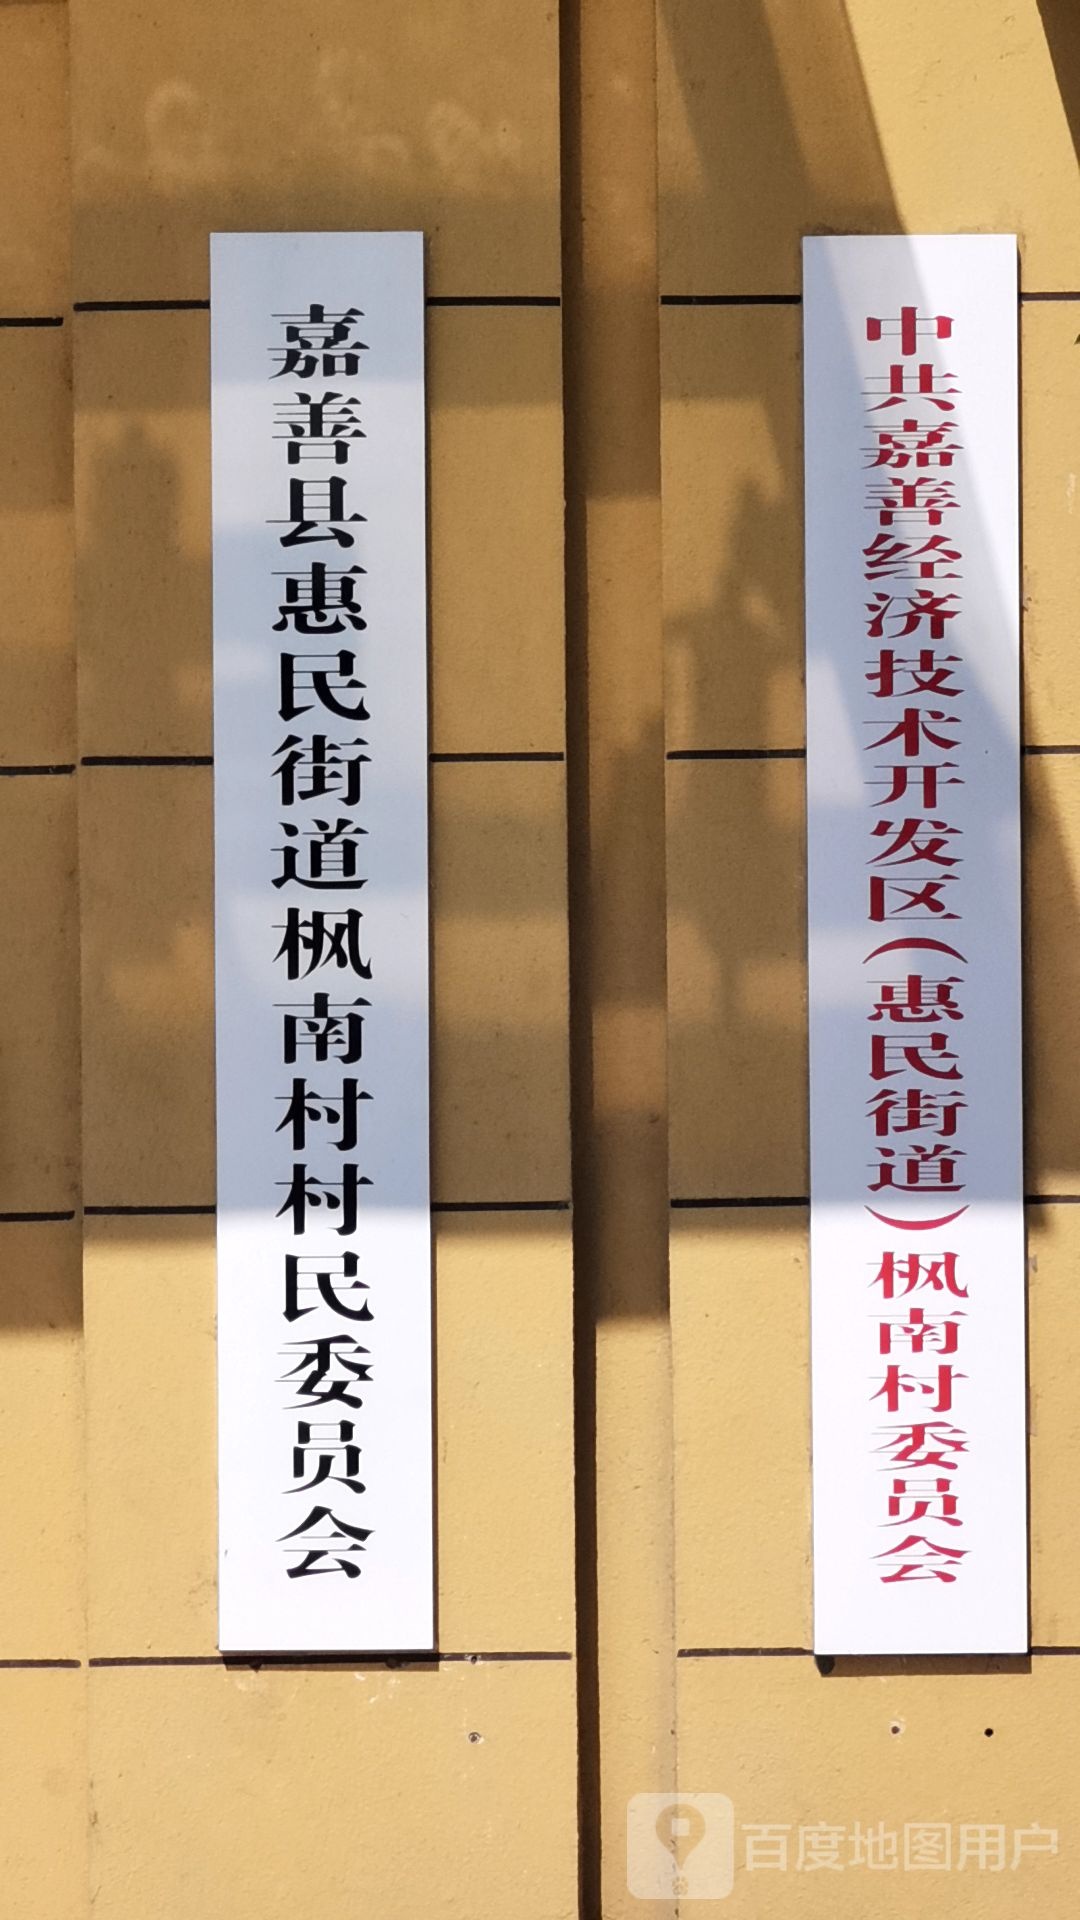 嘉善县惠民街道枫南村村民委员会
中共嘉善经济技术开发区(惠民街道)枫南村委员会
百度地图用户